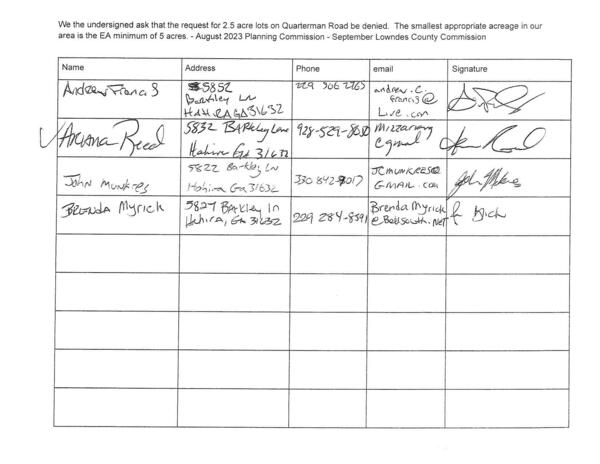 We the undersigned ask that the request for 2.5 acre lots on Quarterman Road be denied. The smallest appropriate acreage in our
area is the EA minimum of 5 acres. - August 2023 Planning Commission - September Lowndes County Commission
Name Address Phone email Signature
Andrew Francis 5852 Barkley Ln HAHIRA GA 31632 229 506 2263 andrew.c.francis@Live.com
Ariana Reed 5832 Barkley Lane Hahira Ga 31632 928-529-8030 gmail
John Munkres 5822 Barkley Ln Hahira Ga 31632 330 842-9017 JCMUNKRES@GMAIL.com
BRENDA Myrick 5827 Barkley ln Hahira, Ga 31632 229 284-8591 Brenda Myrick @Bellsouth.NET